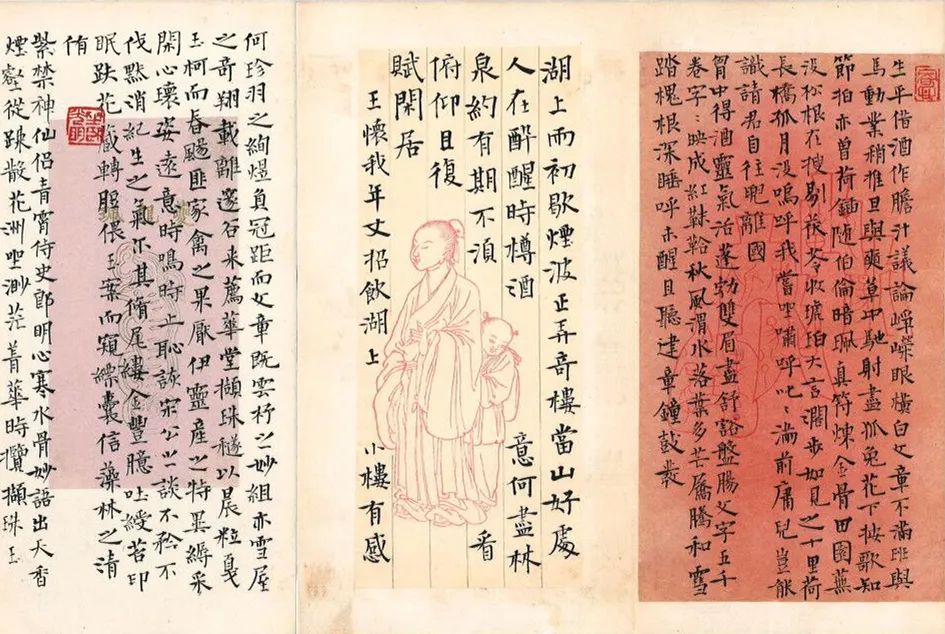 生平借酒作膽汁議論崢嶸眼橫白文章不滿班與
馬動業稍推旦與奭草中馳射盡狐兔花下按歌知
節拍亦曾荷鍤随伯倫暗珮真符煉金骨田園蕪
没松根在搜剔茯苓收琥珀大言濶步如見之十里荷
長橋孤月没嗚呼我嘗坐嘯呼叱〻滿前庸兒豈能
識請君自往晚離國
胃中得酒靈氣活蓬勃雙眉盡舒豁盤腸文字五千
卷字〻映成紅靺鞈秋風渭水落葉多芒屩騰和雪
踏槐根深睡呼未醒且聽建章鐘鼓裝
湖上雨初歇煙波正弄奇樓當山好處
人在醉醒時樽酒意何盡林
泉約有期不湏看
俯仰且復
賦閑居
王懷我年丈招飲湖上 小樓有感
何珍羽之絢煜負冠距而文章既雲杼之妙組亦雪屋
之奇翔載離邃谷来薦華堂擷珠穟以晨粒戛
玉柯而春颺匪家禽之果厭伊靈産之特異縟采
閑心瓌姿遠意時鳴時止恥談宋公之談不矜不
伐黙消紀生之氣尔其脩尾縷金豐臆吐綬苔印
眠趺花藏轉脰偎玉葉而窺縹囊信藻林之清
侑
紫禁神仙侶青宵侍史郎明心寒水骨妙語出天香
煙壑從踈散花洲坐渺茫菁華時攬擷珠玉